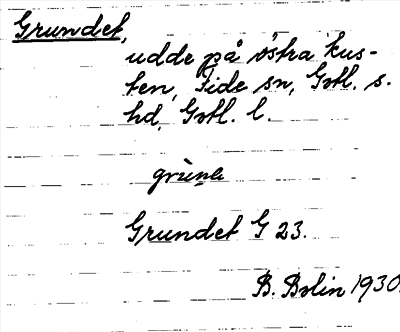 Grundet,
udde på östra kus-
ten, Eide sn, Gotl. s.
hd, Gotl. l.
Grundet G 23.
B. Bolin 1930.